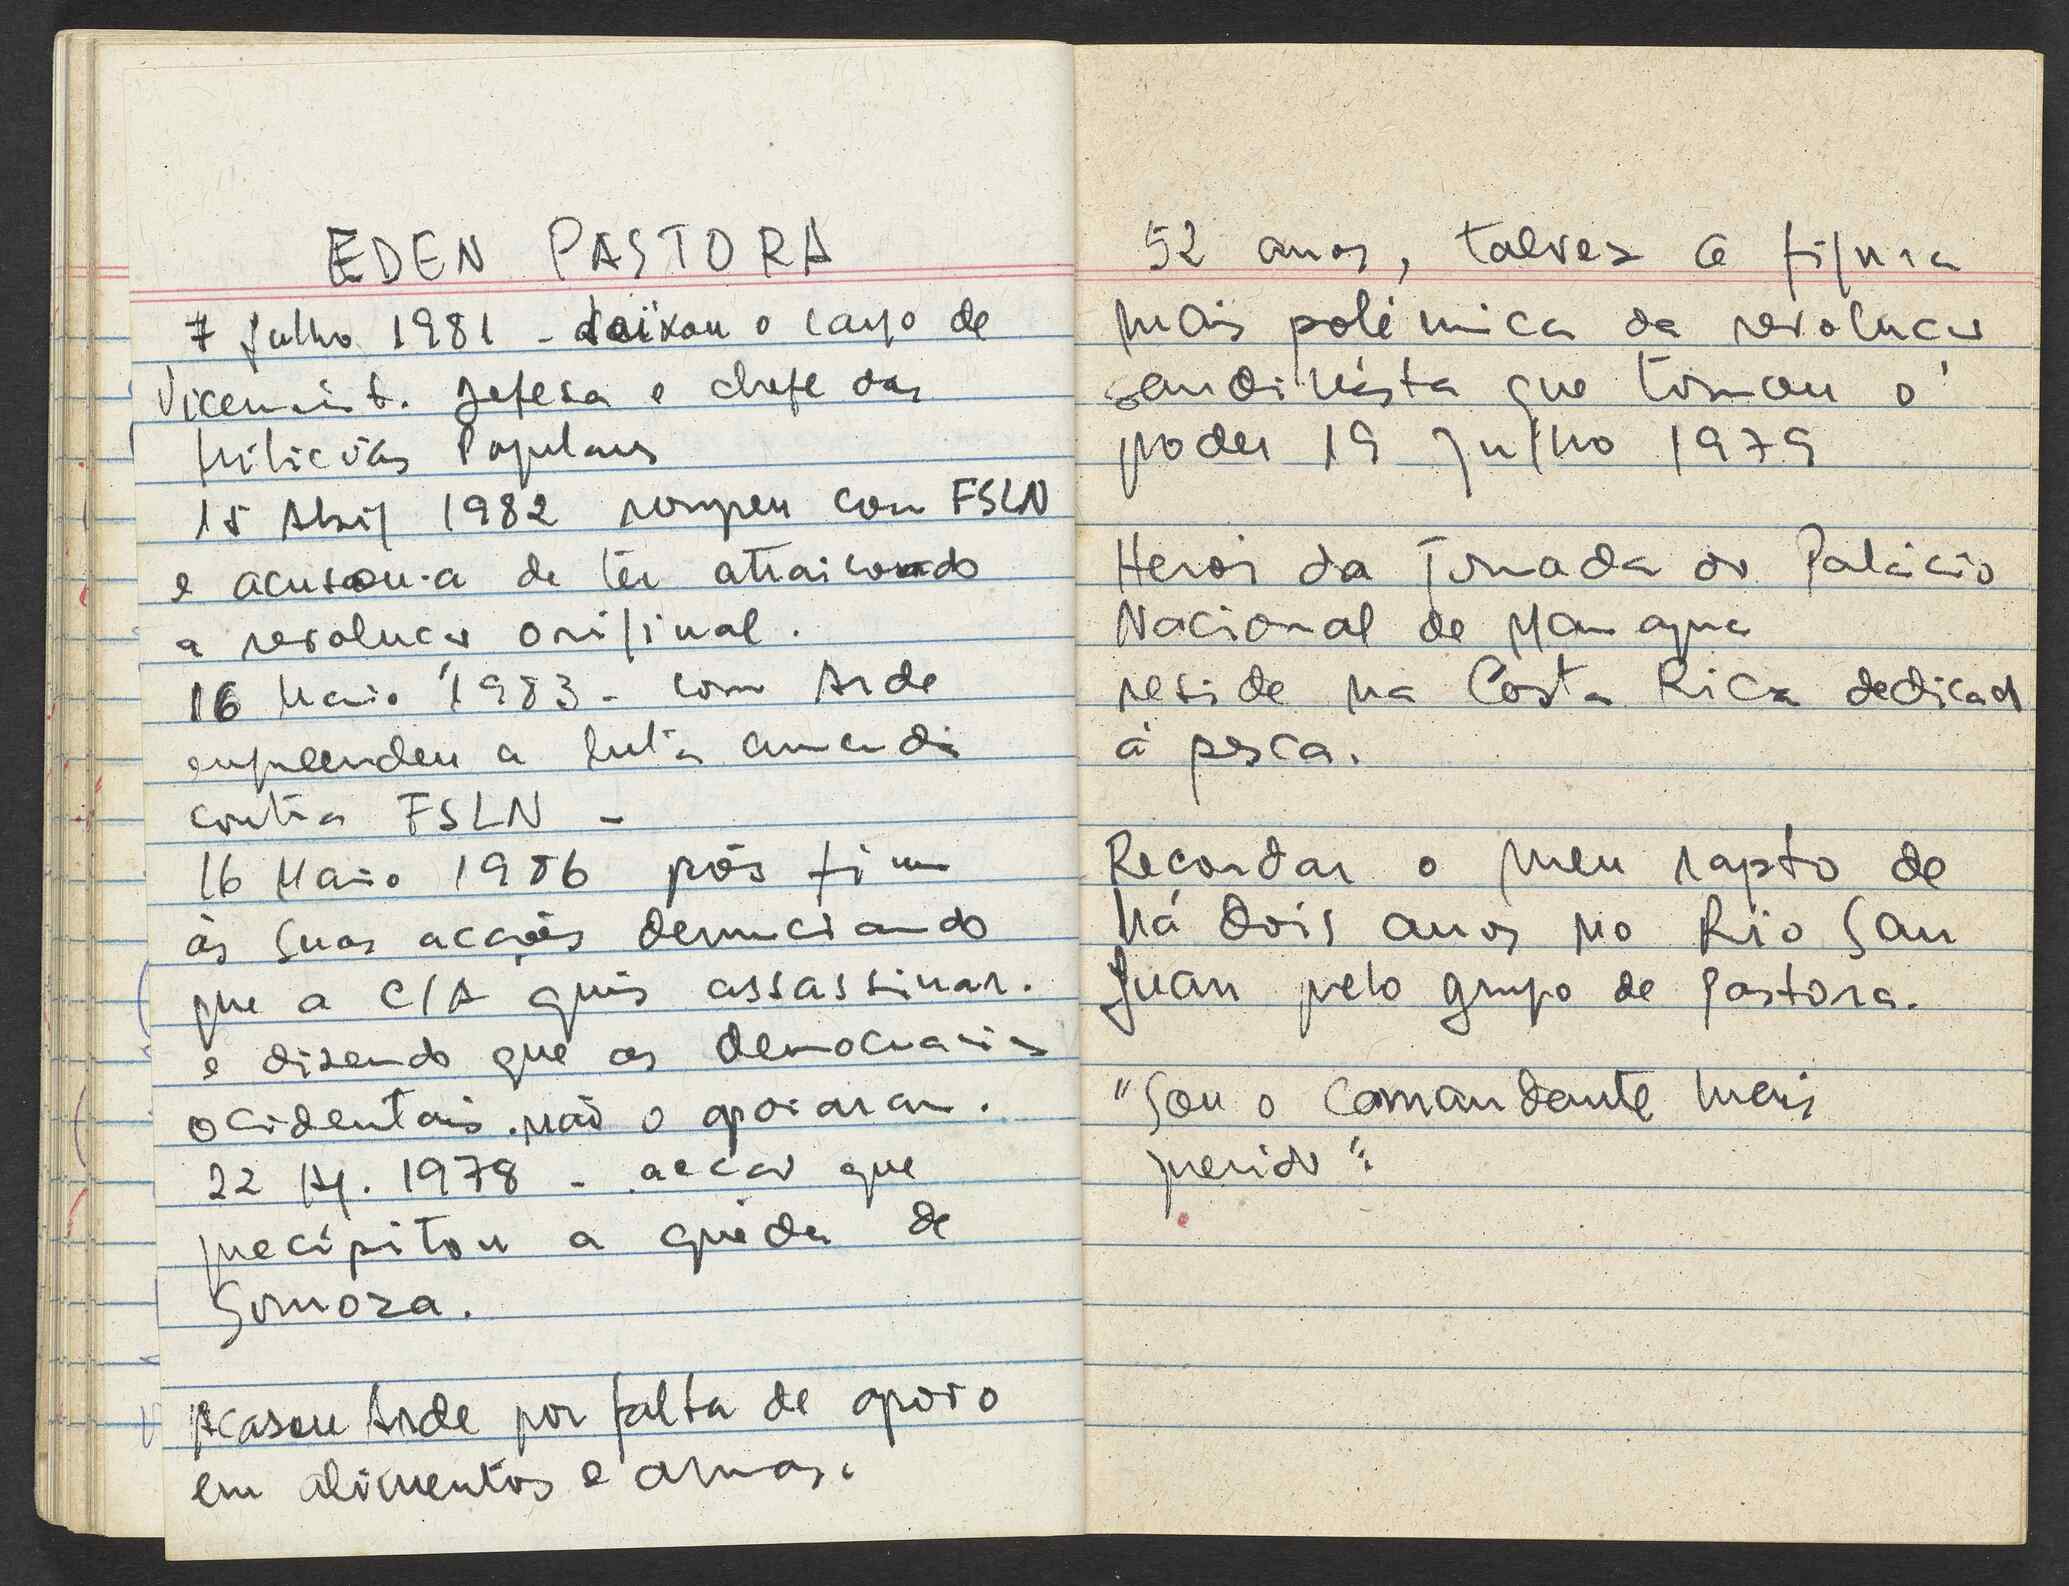 EDEN PASTORA
7 Julho 1981 - deixou o cargo de
Vicemint. Defesa e chefe das
Milicias Populares
15 Abril 1982 rompeu com FSLN
e acusou-a de ter atraiçoado
a revolução original.
16 Maio 1983 - com Arde
empreendeu a luta armada
contra FSLN -
16 Maio 1986 pôs fim
às suas acções denunciando
que a CIA quis assassinar.
e dizendo que as democracias
ocidentais não o apoiaram.
22 Ag. 1978 - acção que
precipitou a quéda de
Somoza.
Acasou Arde por falta de apoio
em alimentos e armas.
52 anos, talvez a figura
mais polémica da revolução
sandinista que tomou o
poder 19 Julho 1979
Heroi da Tomada do Palácio
Nacional de Managua
reside na Costa Rica dedicado
à pesca.
Recordar o meu rapto de
há dois anos no Rio San
Juan pelo grupo de Pastora.
"Sou o comandante mais
querido".